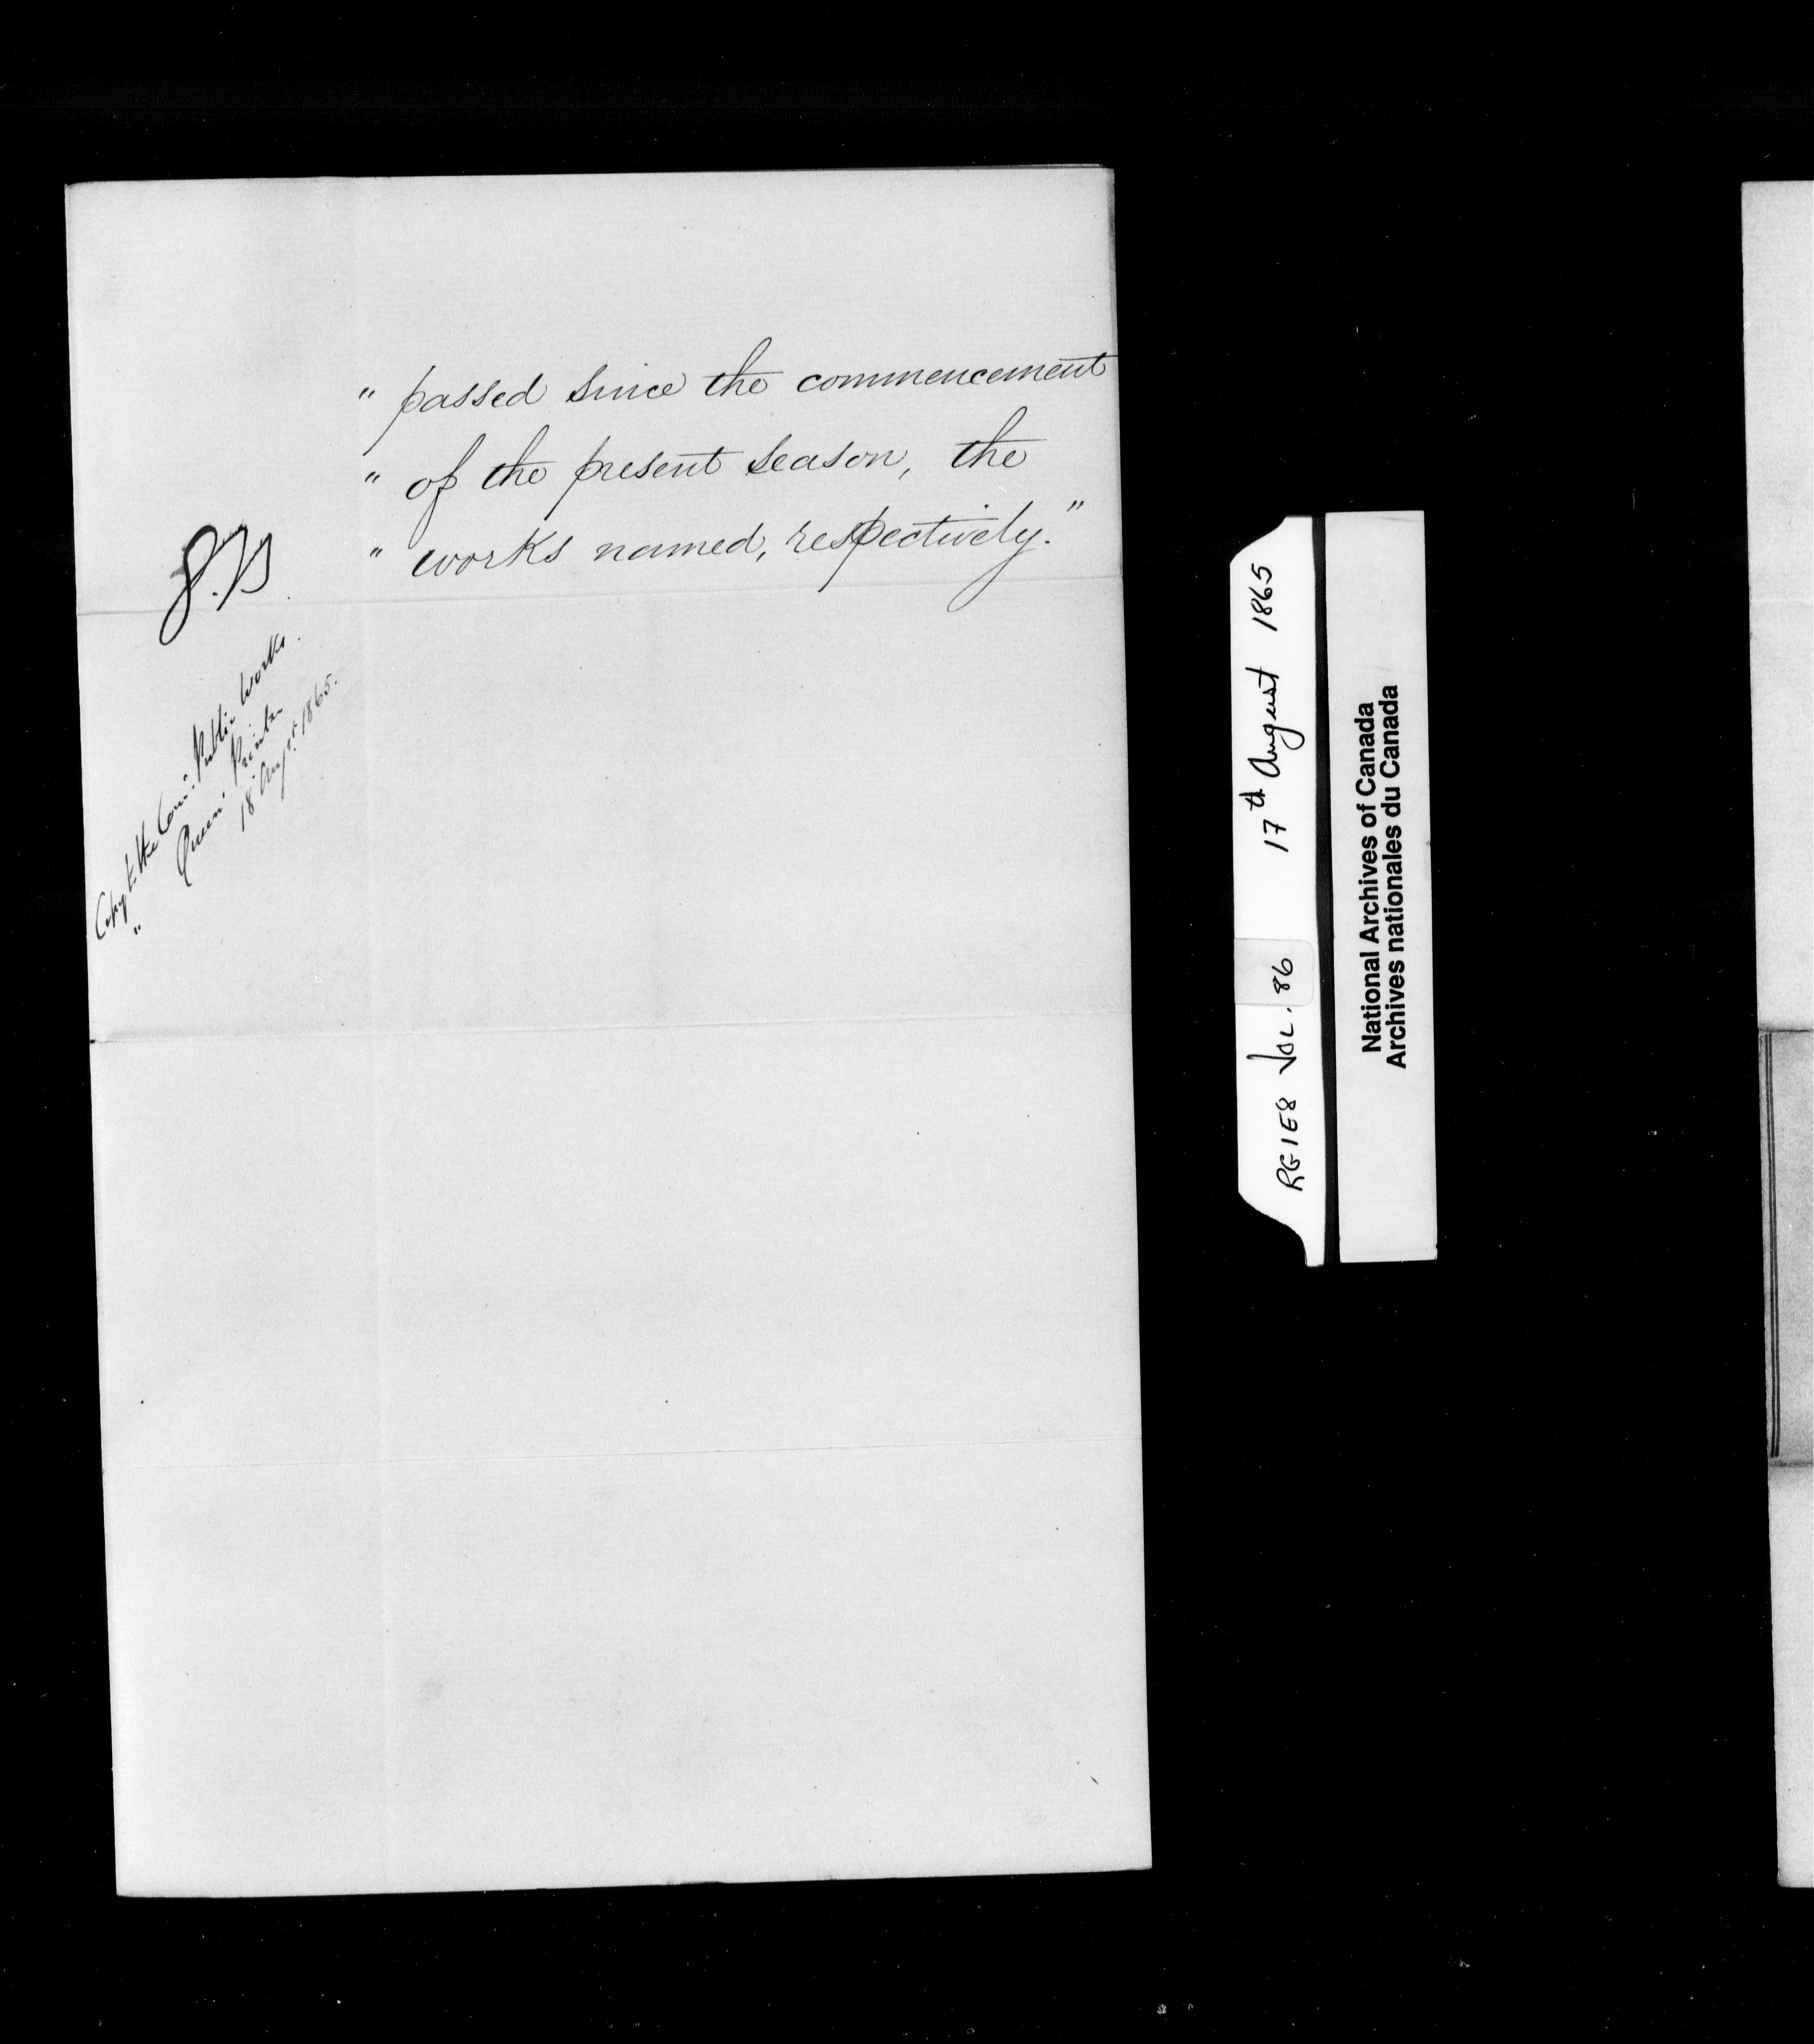 " passed since the commencement
" of the present season, the
" works named, respectively."
J.B
Copy to the Com: Public Works.
" Queens Printer
18 Augst. 1865.
RG1E8 VOL. 86 17th August 1865
National Archives of Canada
Archives nationales du Canada